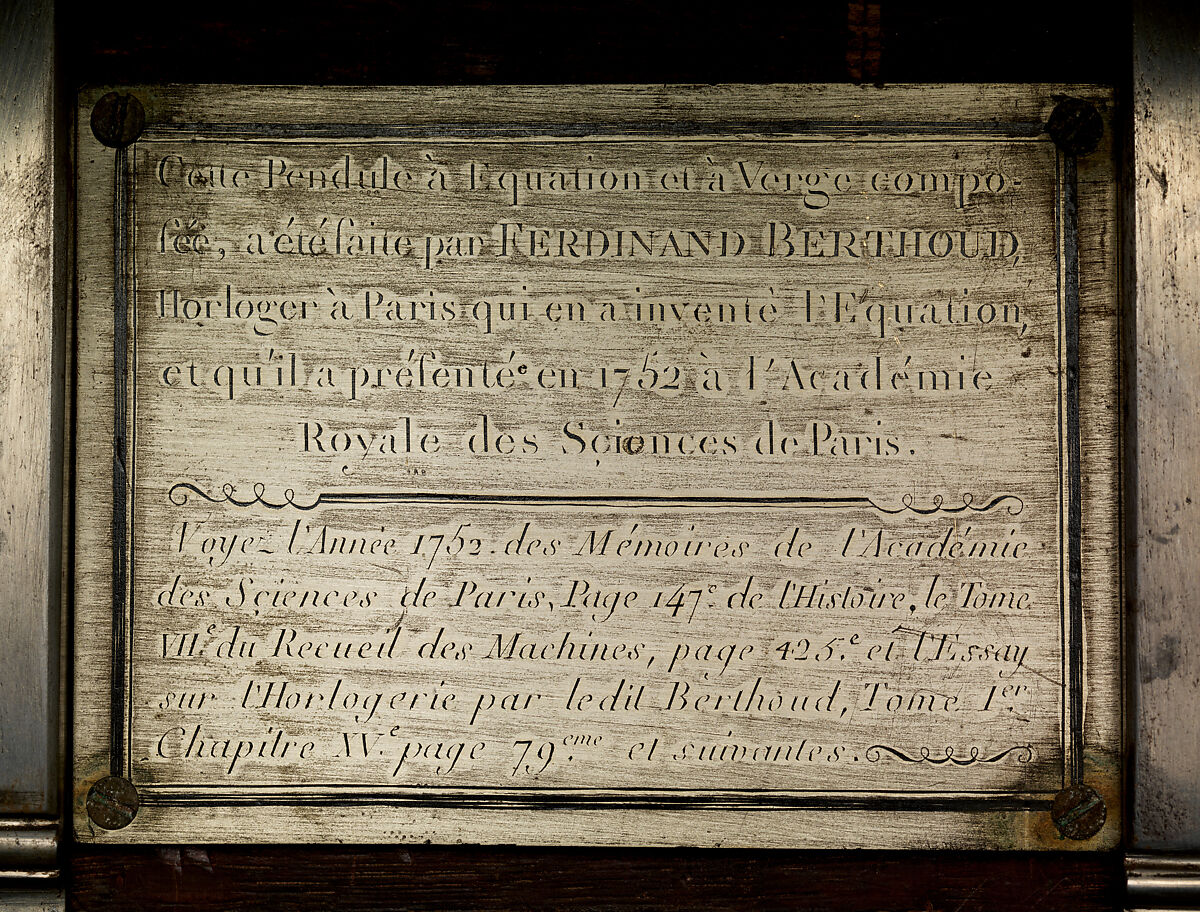 Cette Pendule à Equation et à Verge compo-
sèé, a été faite par FERDINAND BERTHOUD,
Horloger à Paris qui en a inventè l'Equation,
et qu'il a présentée en 1752 à l'Académie
Royale des Sçiences de Paris.
Voyez l'Année 1752. des Mémoires de l'Académie
des Sçiences de Paris, Page 147e. de l'Histoire, le Tome
VIIe. du Recueil des Machines, page 425.e et l'Essay
sur l'Horlogerie par ledit Berthoud, Tome Ier.
Chapitre XVe. page 79eme. et suivantes.